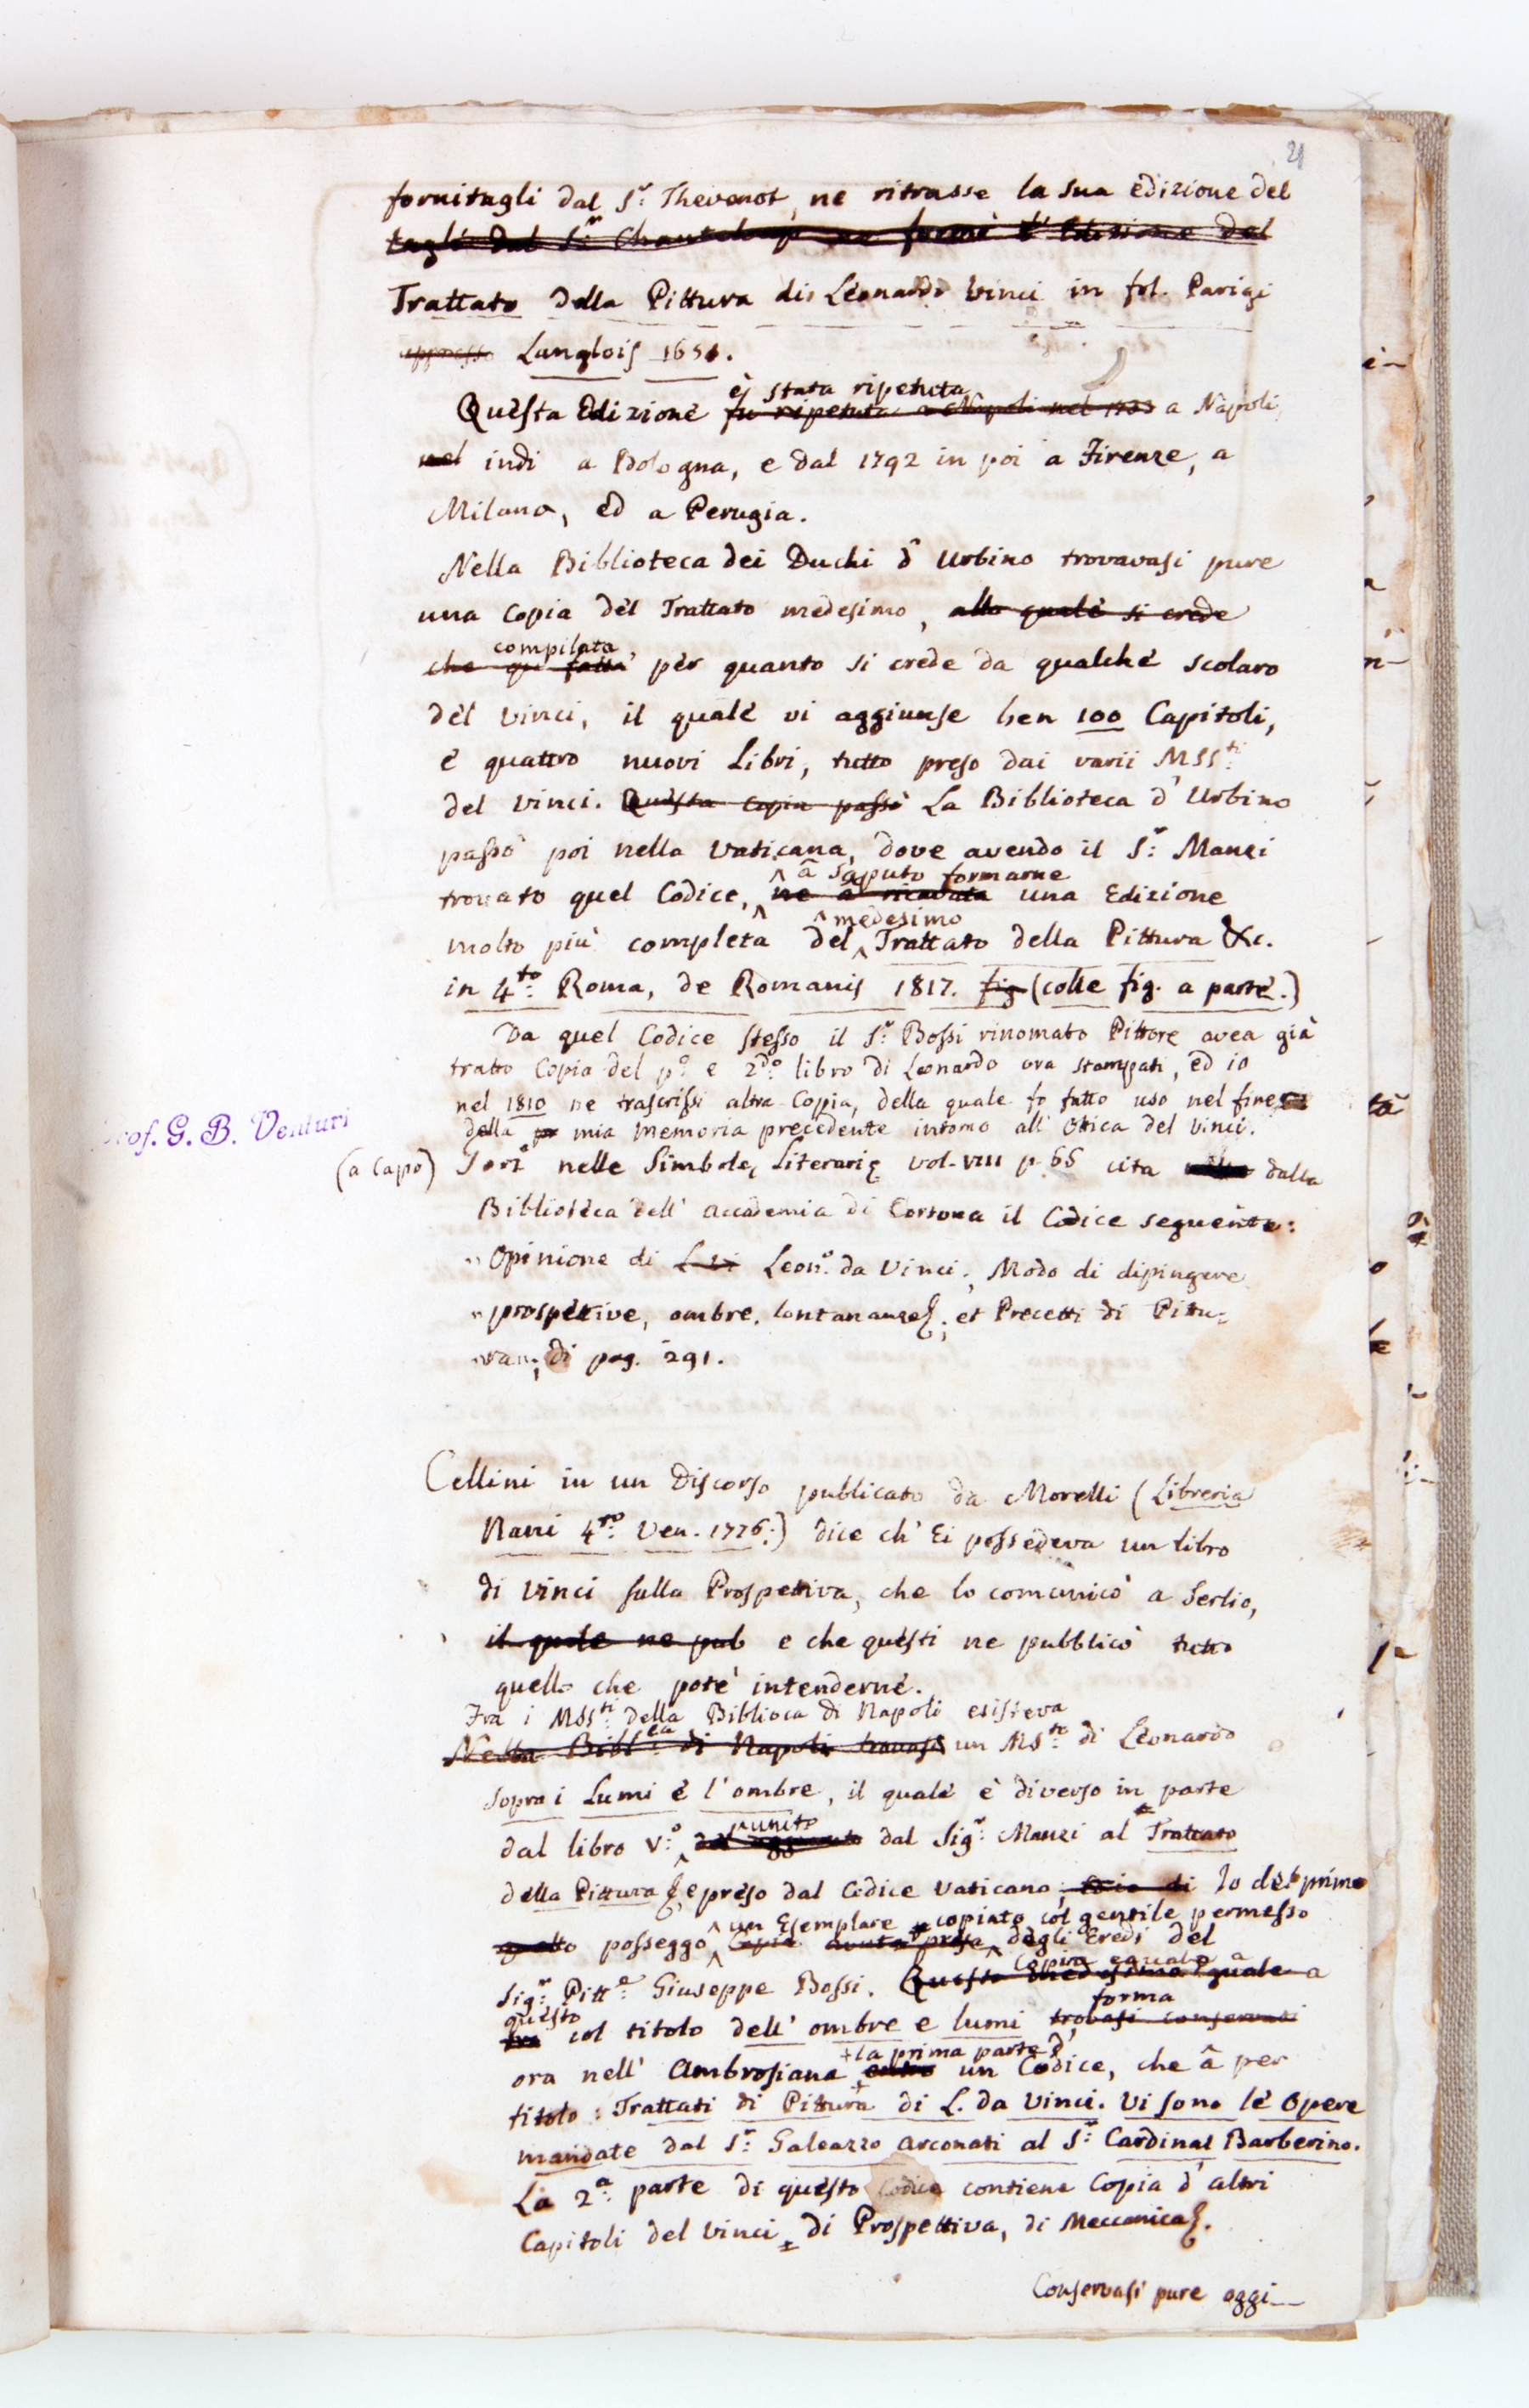 21
fornitagli dal S.r Thevenot, ne ritrasse la sua edizione del
tagli dal S.r ne formò l'Edizione del
Trattato della Pittura di Léonardo Vinci in fol. Parigi
appresso Langlois 1651.
è stata ripetuta
Questa Edizione fu ripetuta a Napoli nel 1733 a Napoli,
nel indi a Bologna, e dal 1792 in poi a Firenze, a
Milano, ed a Perugia.
Nella Biblioteca dei Duchi d'Urbino trovavasi pure
una Copia del Trattato medesimo, alla quale si crede
compilata,
che fatta per quanto si crede da qualche scolaro
del Vinci, il quale vi aggiunse ben 100 Capitoli,
e quattro nuovi Libri, tutto preso dai varii MSS.ti
del Vinci. Questa copia passò La Biblioteca d'Urbino
passò poi nella Vaticana, dove avendo il S.r Manzi
â saputo formarne
trovato quel Codice, ne â ricavata una Edizione
medesimo
molto più completa del Trattato della Pittura &c.
in 4.to Roma, de Romanis 1817. fig (colle fig. a parte.)
Da quel Codice stesso il S.r Bossi rinomato Pittore avea già
tratto Copia del p.o e 2.do libro di Leonardo ora stampati, ed io
nel 1810 ne trascrissi altra Copia, della quale fo fatto uso nel fine
della mia Memoria precedente intorno all'Ottica del Vinci.
Prof. G. B. Venturi
(a Capo) Gori nelle Simbole Literarie vol. VIII p. 66 cita dalla
Biblioteca dell'Accademia di Cortona il Codice seguente:
" Opinione di Leon.o da Vinci; Modo di dipingere
" prospettive, ombre, lontananze; et Precetti di Pittu-
"ra"; di pag. 291.
Cellini in un Discorso publicato da Morelli (Libreria
Nani 4.to Ven. 1776.) dice ch'Ei possedeva un libro
di Vinci sulla Prospettiva, che lo comunicò a Serlio,
il quale ne pub e che questi ne pubblicò tutto
quello che potè intenderne.
Fra i MSS.ti della Biblioca di Napoli esisteva
Nella Bibl.ca di Napoli trovasi un MS.to di Léonardo
sopra i Lumi e l'ombre, il quale è diverso in parte
unito
dal libro V.o aggiunto dal Sig.r Manzi al Trattato
della Pittura, e preso dal Codice Vaticano; Io del primo
un Esemplare copiato col gentile permesso
posseggo Copia avuta degli Eredi del
Copia eguale a
Sig.r Pitt.e Giuseppe Bossi. Questo medesimo quale a
questo forma
col titolo dell'ombre e lumi trovasi conservasi
+ la prima parte d'
ora nell'Ambrosiana un Codice, che â per
titolo: Trattati di Pittura di L. da Vinci. Vi sono le Opere
mandate dal S.r Galeazzo Arconati al S.r Cardinal Barberino.
La 2.a parte di questo Codice contiene Copia d'altri
Capitoli del Vinci di Prospettiva, di Meccanica.
Conservasi pure oggi